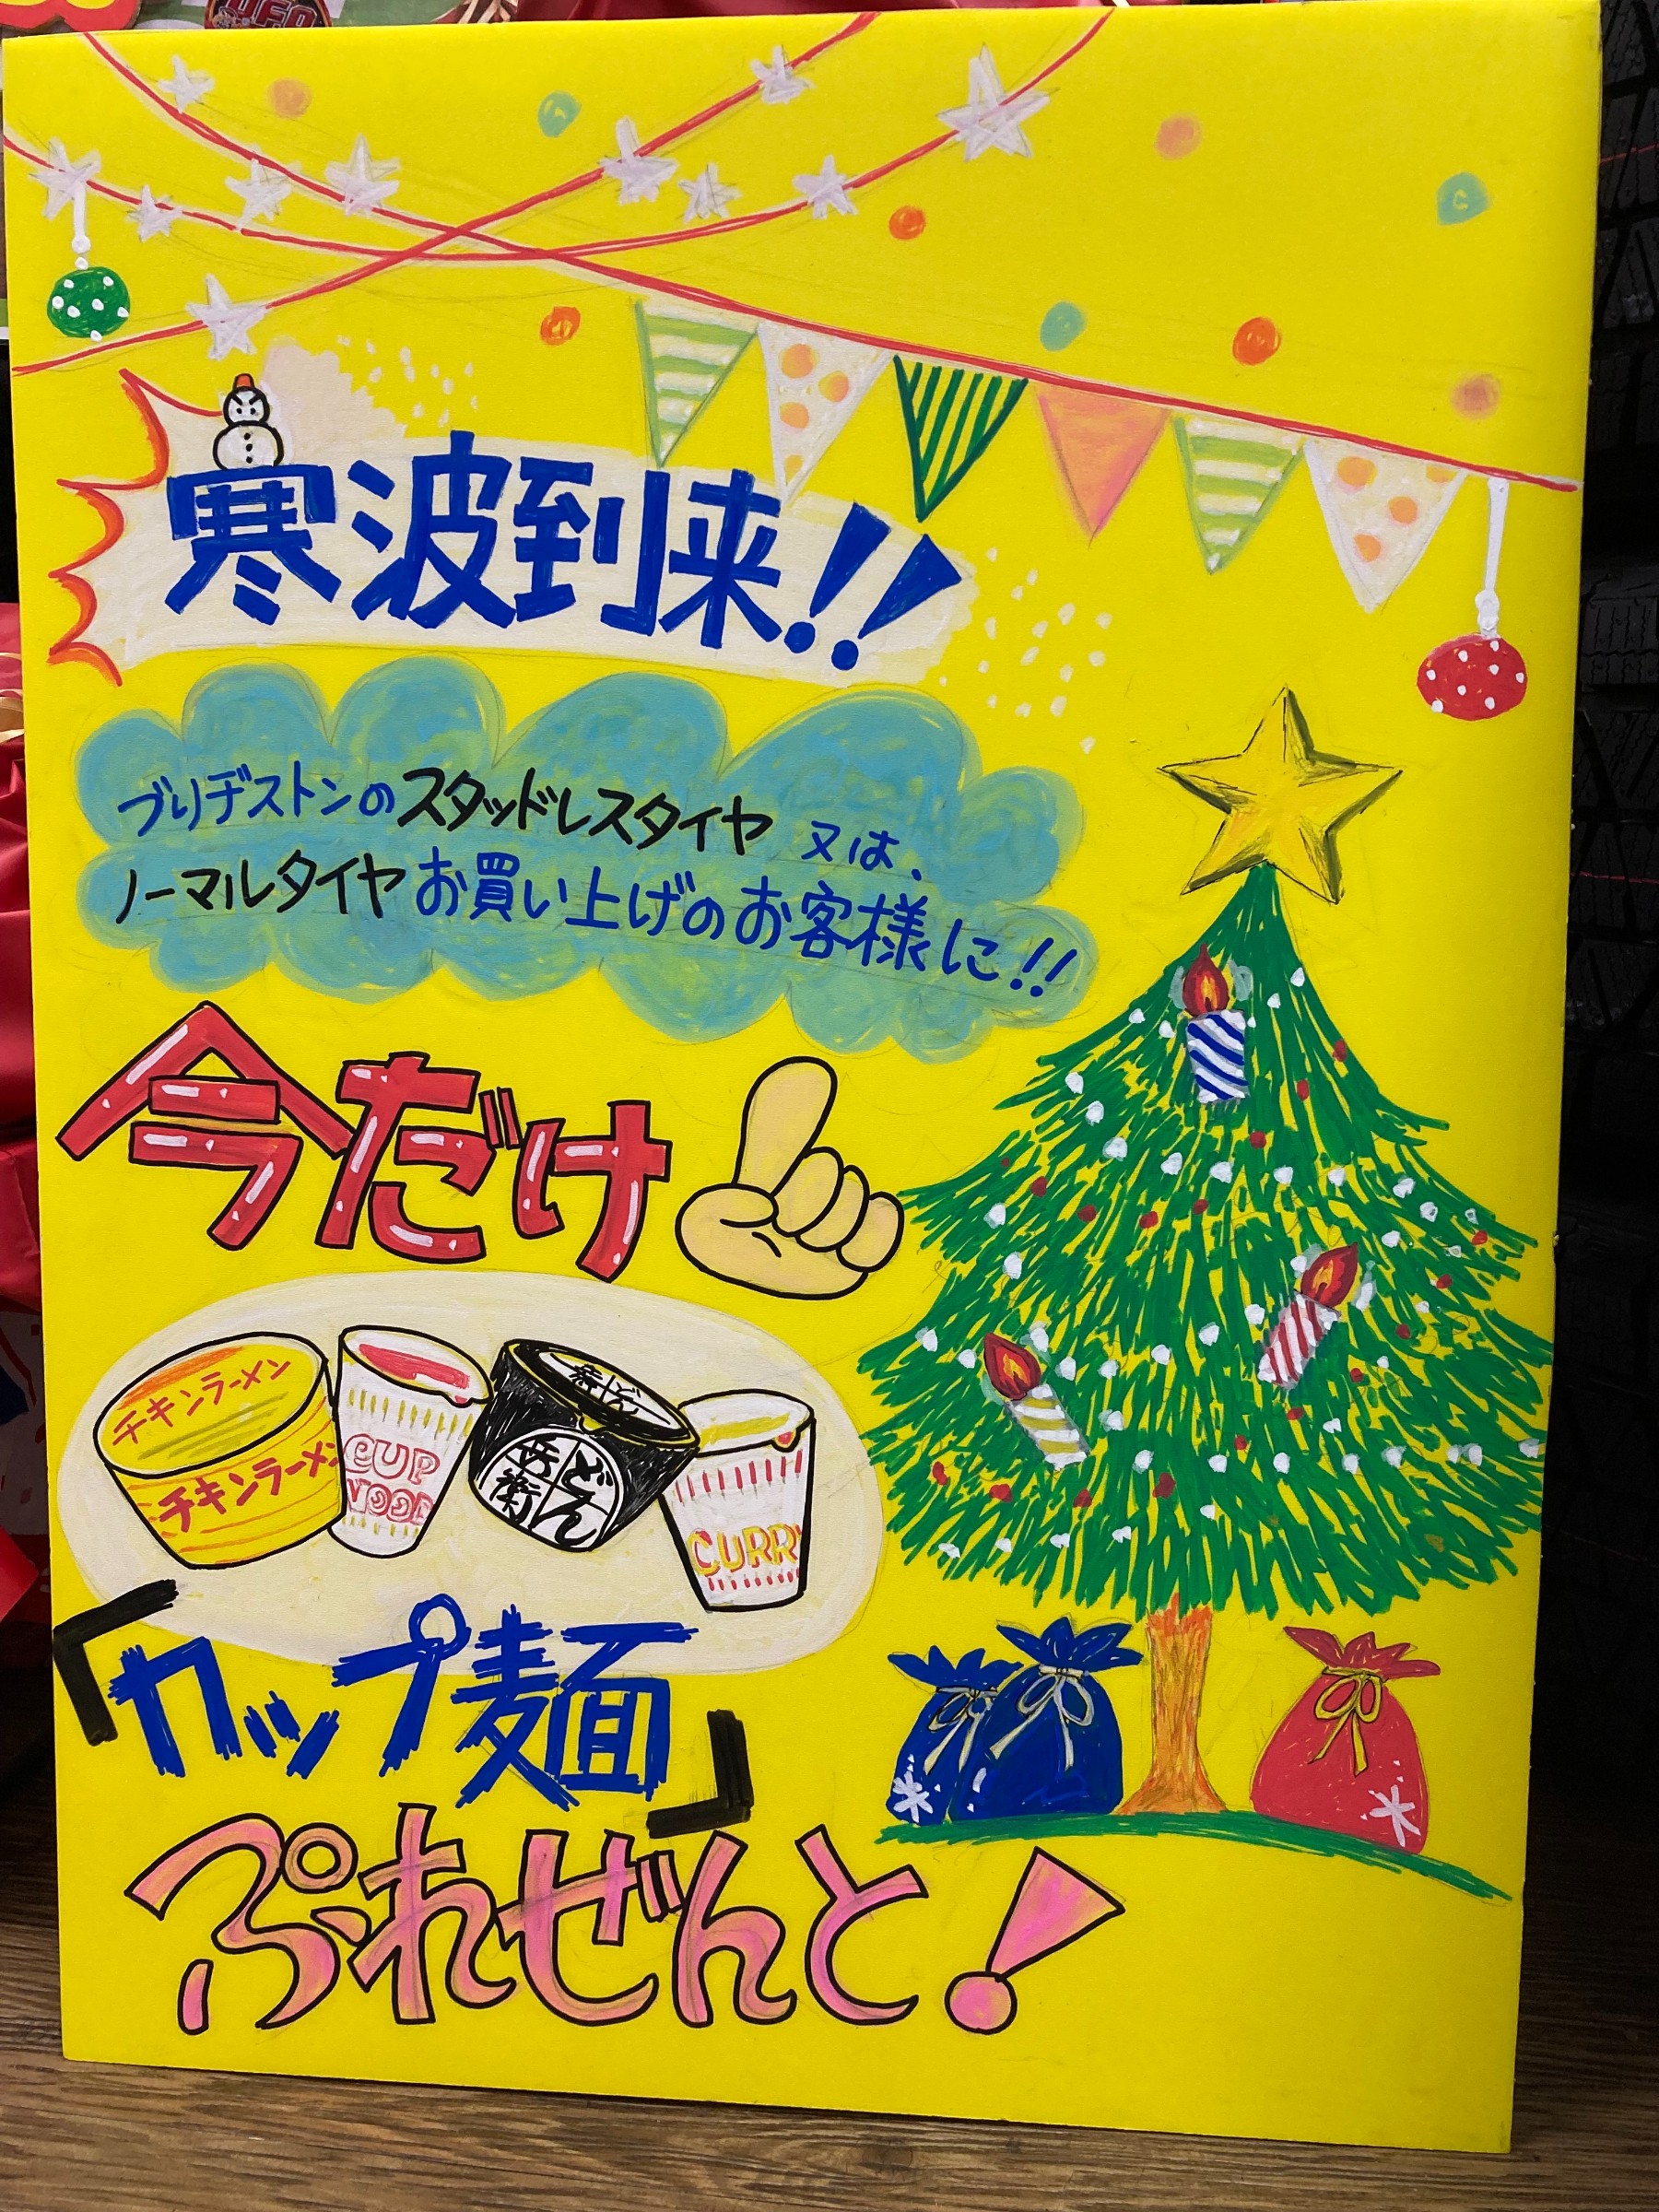 寒波到来!!
ブリヂストンのスタッドレスタイヤ 又は、
ノーマルタイヤお買い上げのお客様に!!
今だけ
チキンラーメン
チキンラーメン
CUP
NOOD
どん
兵衛
CURR
「カップ麺」
ぷれぜんと!